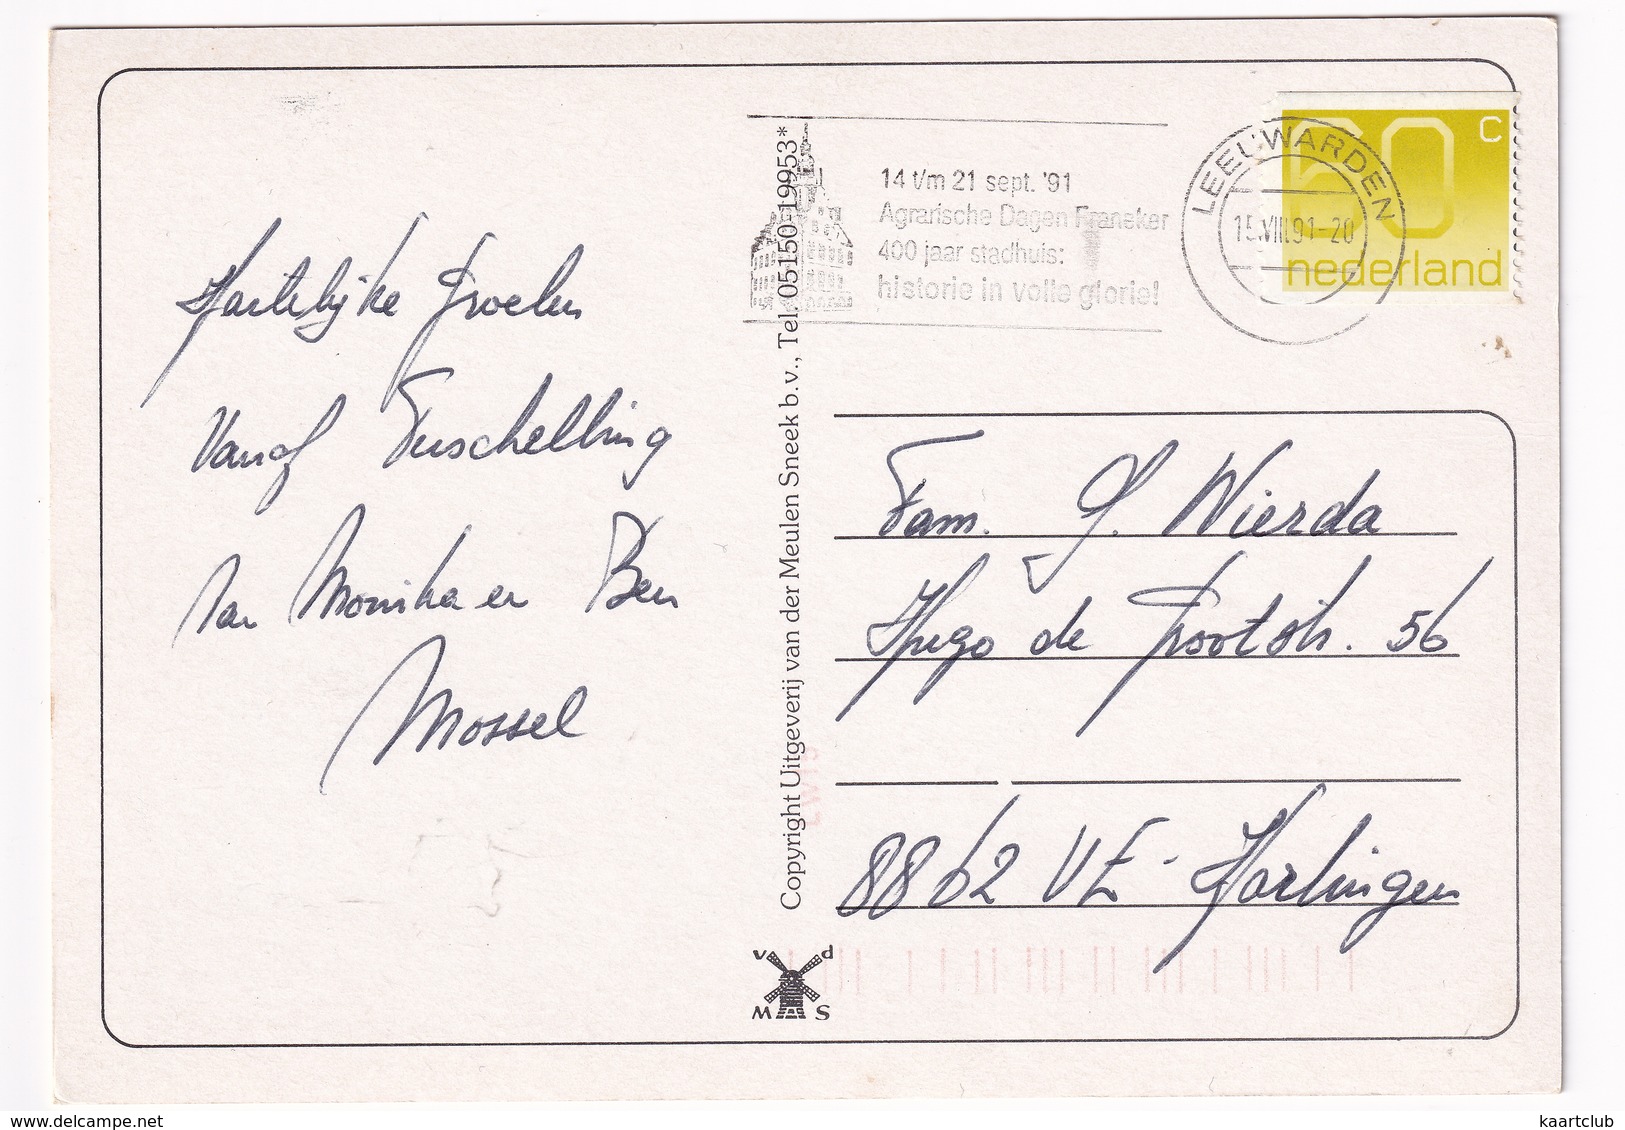 Hartelijke Groeten
Vanaf Terschelling
Van Monika en Ben
Mossel
Copyright Uitgeverij van der Meulen Sneek b.v., Tel. 05150-19953*
v d
M S
14 t/m 21 sept. '91
Agrarische Dagen Franeker
400 jaar stadhuis:
historie in volle glorie!
LEEUWARDEN
15.VIII.91-20
60 C
nederland
Fam. G. Wierda
Hugo de Grootstr. 56
8862 VE Harlingen
kaartclub